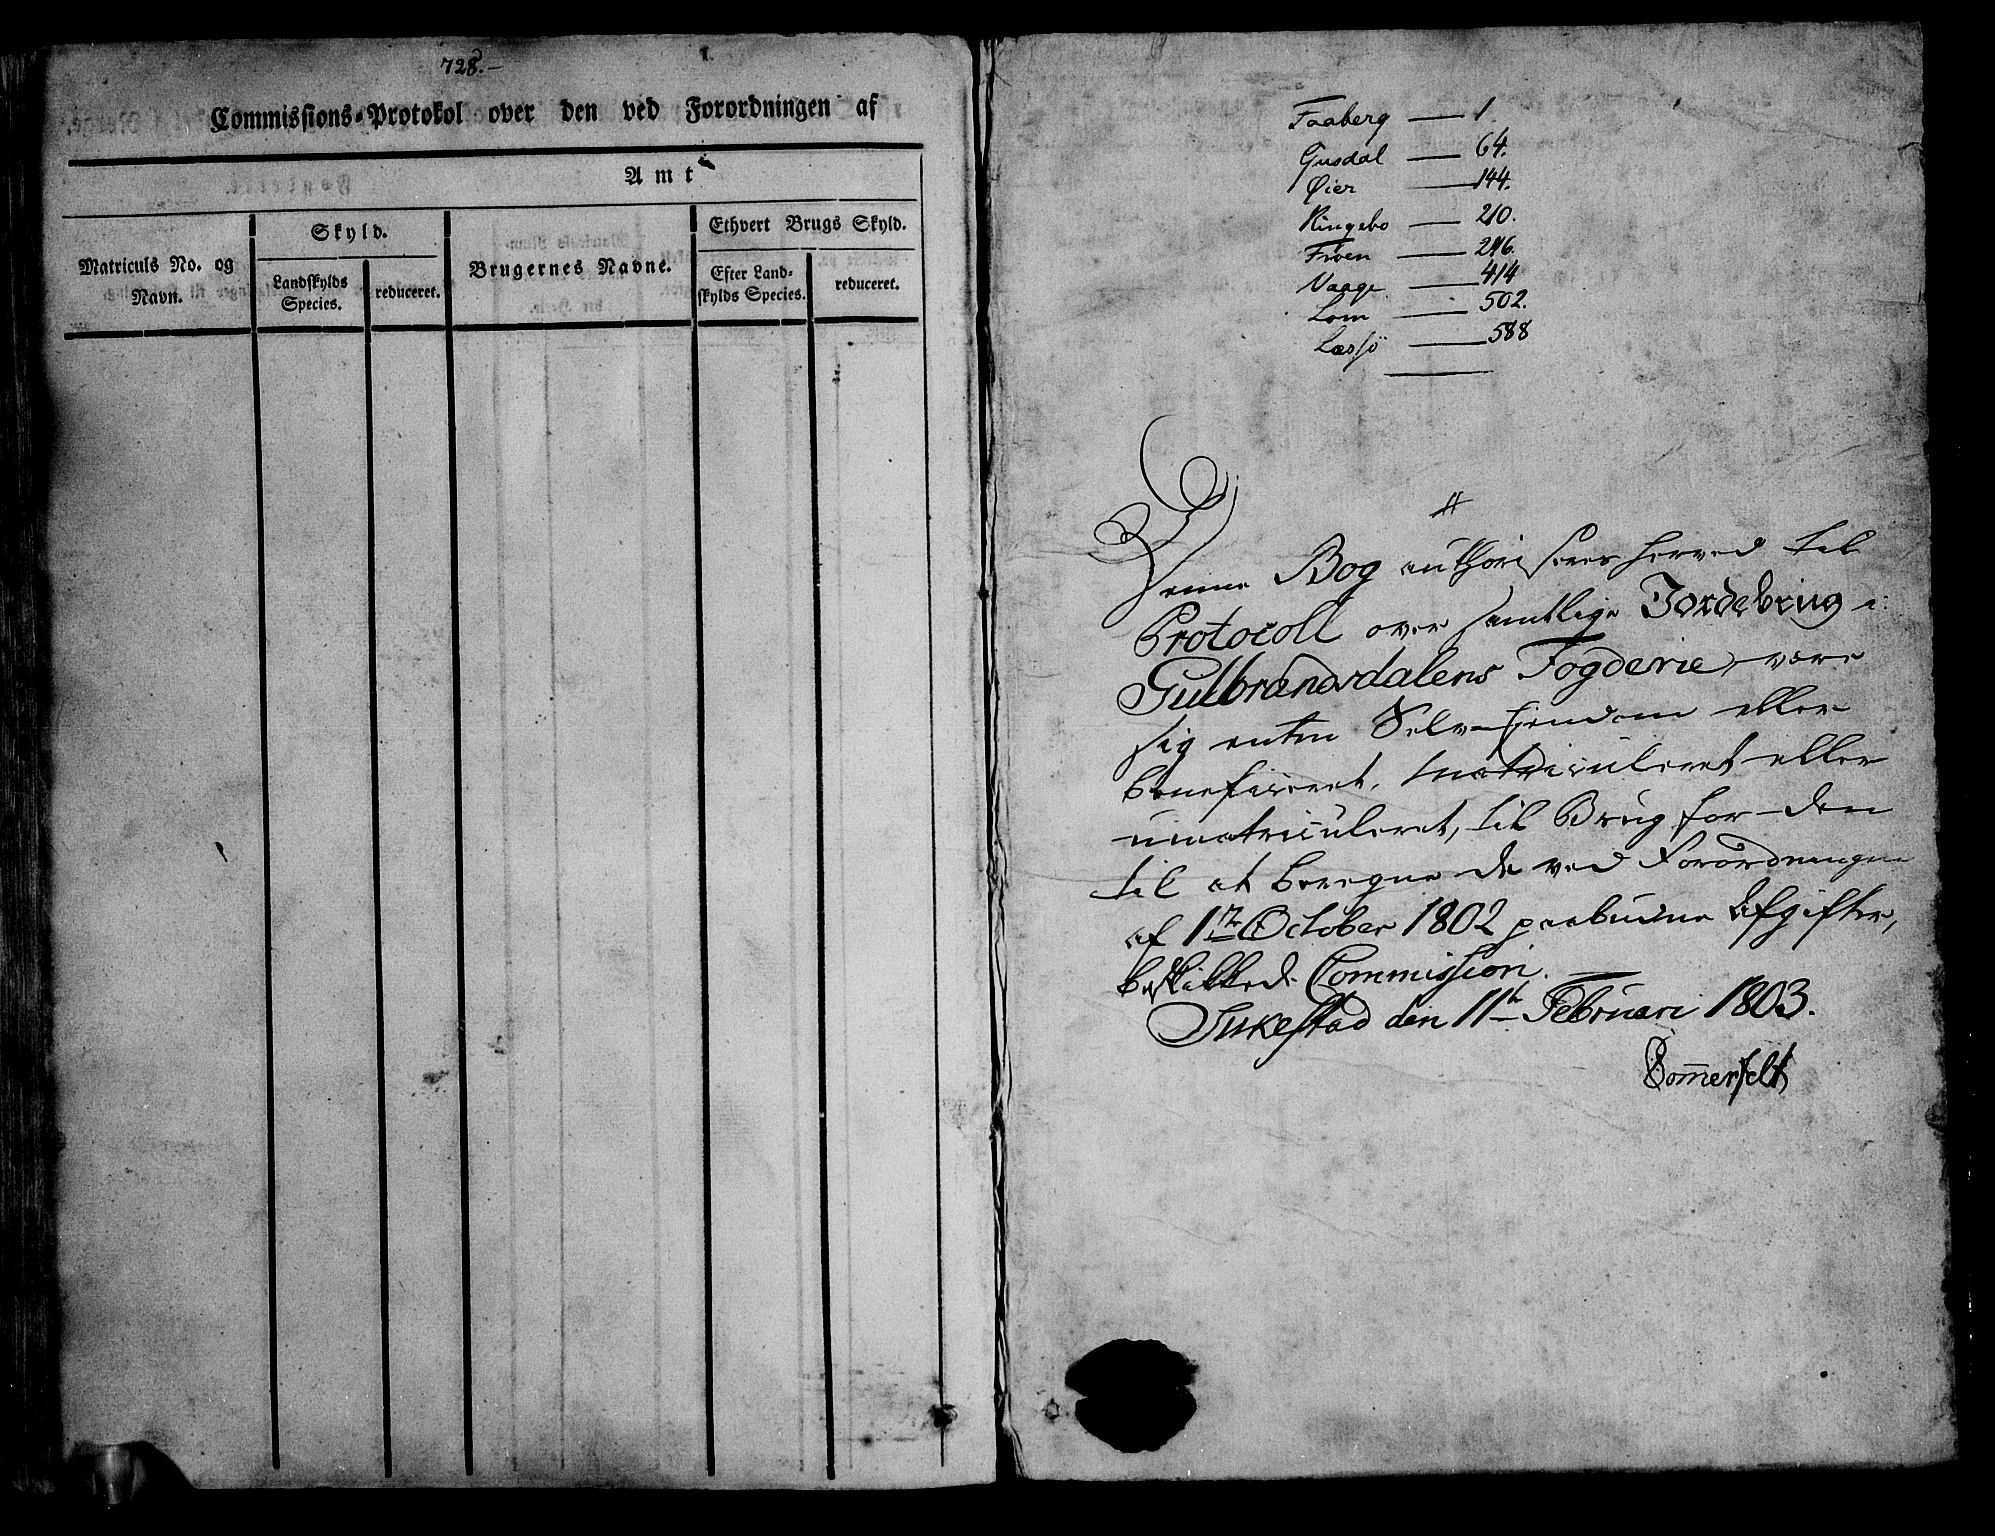 728.-
Commissions-Protokol over den ved Forordningen af
Amt
Matriculs No. og Navn.
Skyld.
Landskylds Species.
reduceret.
Brugernes Navne.
Ethvert Brugs Skyld.
Efter Land-
skylds Species.
reduceret.
Faaberg — 1.
Gusdal — 64.
Øier — 144.
Ringebo — 210.
Froen — 296.
Vaage — 414
Lom — 502.
Læssö — 588
Denne Bog authoriseres herved til
Protocoll over samtlige Jordebrug i
Gulbrandsdalens Fogderie, være
sig enten Selv-Eiendom eller
beneficeret, matriculeret eller
umatriculeret, til Brug for den
til at beregne de ved Forordningen
af 1te October 1802 paabudne Afgifter,
beskikkede Commission.
Sukestad den 11te Februari 1803.
Sommerfelt